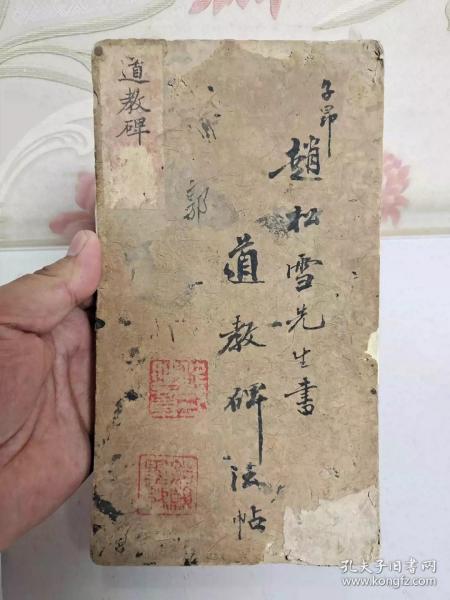 子昂
趙松雪先生書
道教碑法帖
郭
道教碑
孔夫子旧书网
www.kongfz.com